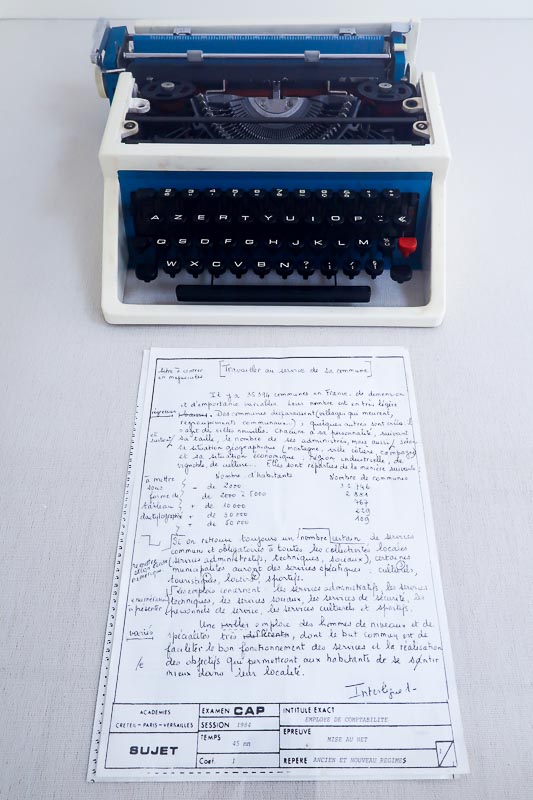 A Z E R T Y U I O P
Q S D F G H J K L M
W X C V B N
titre à centrer
en majuscules
[Travailler au service de sa commune]
Il y a 35 594 communes en France, de dimension
et d'importance variables. Leur nombre est en très légère
régression. Des communes disparaissent (villages qui meurent,
regroupements communaux...) ; quelques autres sont créées. Il
s'agit de villes nouvelles. Chacune a sa personnalité, suivant
sa taille, le nombre de ses administrés, mais aussi selon
sa situation géographique (montagne, ville côtière, campagne)
et sa situation économique : région industrielle, de
vignoble, de culture... Elles sont réparties de la manière suivante
à mettre
sous
forme de
tableau
dactylographié
Nombre d'habitants
Nombre de communes
- de 2000
de 2000 à 5000
+ de 10 000
+ de 30 000
+ de 50 000
On retrouve toujours un nombre certain de services
communs et obligatoires à toutes les collectivités locales
(services administratifs, techniques, sociaux), certaines
municipalités auront des services spécifiques : culturels,
touristiques, sportifs.
énumération
à présenter
Les emplois concernent : les services administratifs, les services
techniques, les services sociaux, les services de sécurité, les
personnels de service, les services culturels et sportifs.
variés
Une emploie des hommes de niveaux et de
spécialités très différents, dont le but commun est de
faciliter le bon fonctionnement des services et la réalisation
des objectifs qui permettront aux habitants de se sentir
mieux dans leur localité.
Interligne 1-
ACADEMIES
CRETEIL - PARIS - VERSAILLES
SUJET
EXAMEN CAP
SESSION 1984
TEMPS 45 mn
Coef. 1
INTITULE EXACT
EMPLOYE DE COMPTABILITE
EPREUVE
MISE AU NET
REPERE ANCIEN ET NOUVEAU REGIMES
1